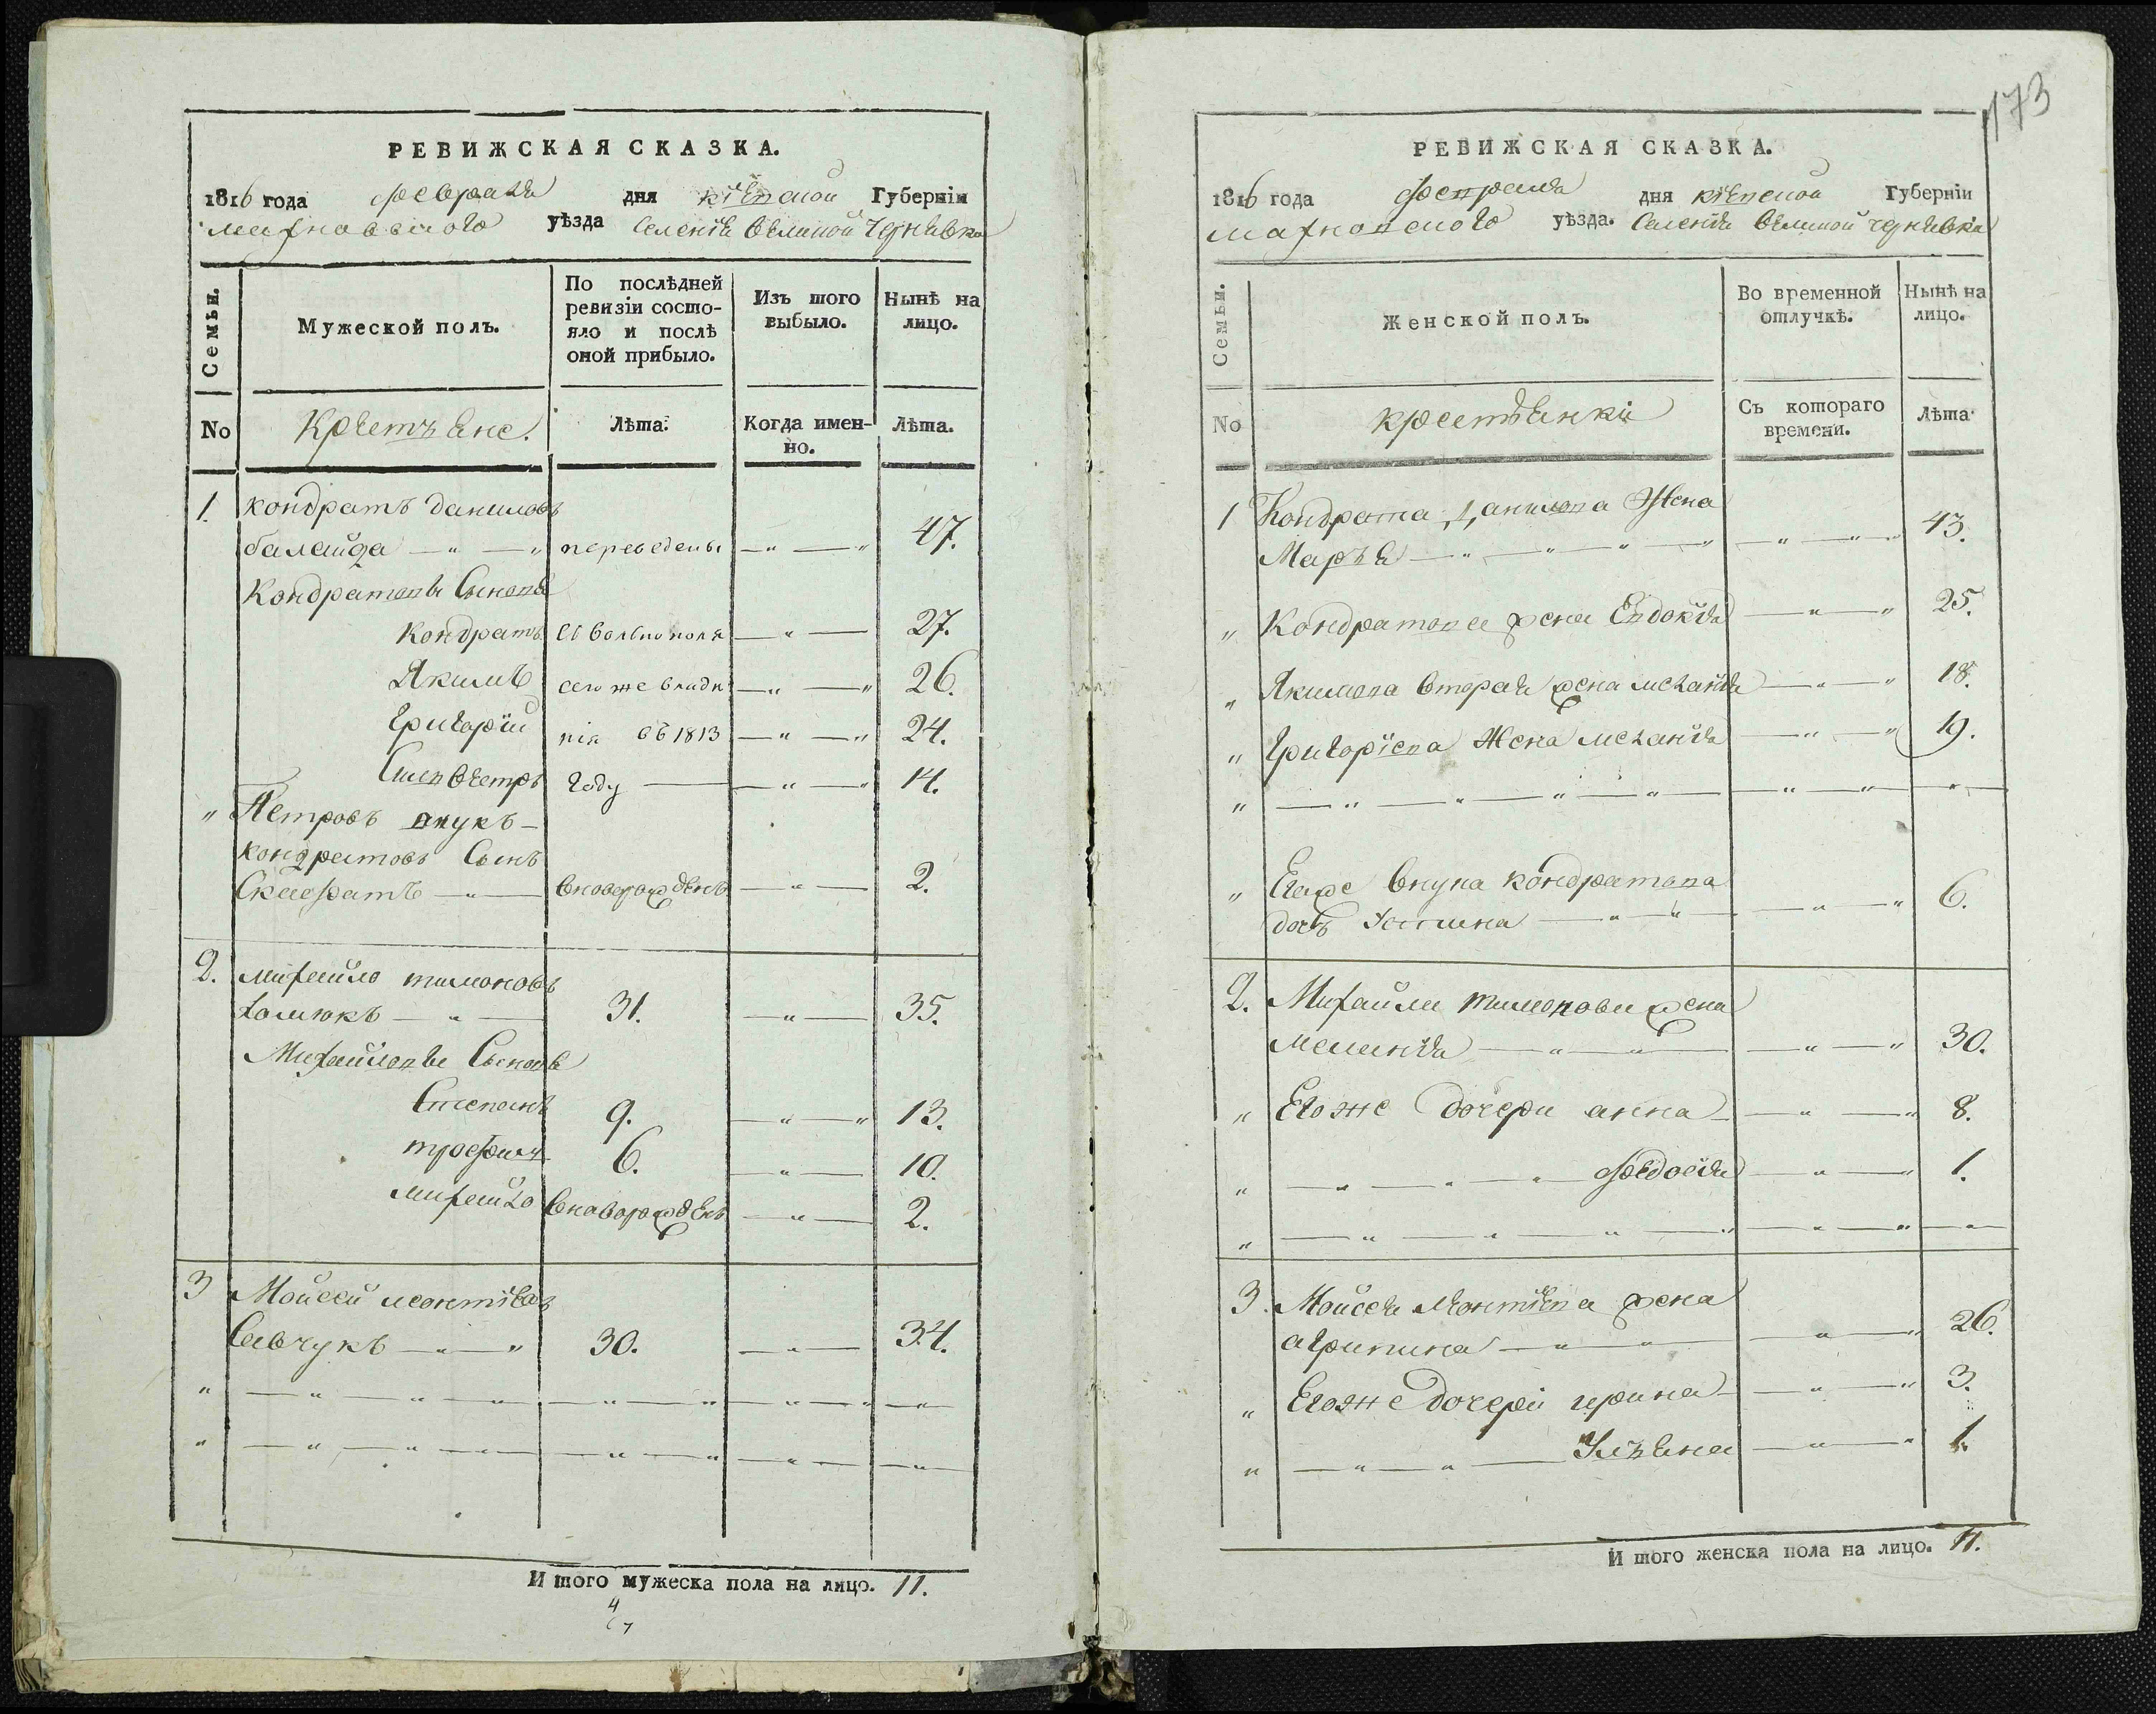 РЕВИЖСКАЯ СКАЗКА.
1816 года февраля дня кіевской Губерніи
махновского уѣзда Селенія Великой Чернявки
Семьи.
Мужеской полъ.
По послѣдней ревизіи состояло и послѣ оной прибыло.
Изъ того выбыло.
Нынѣ на лицо.
No
Крестьяне.
Лѣта.
Когда именно.
Лѣта.
1. кондратъ даниловъ
балайда — „ — „ переведены — „ — „ 47.
Кондратовы Сыновя
кондратъ — „ — 27.
Якимъ сего же владѣ — „ — „ 26.
Григорій нія въ 1813 — „ — „ 24.
году — — „ — „ 14.
„ Петровъ внукъ —
кондратовъ Сынъ
вноворожденъ — „ — 2.
2. михайло тимоновъ
31. — „ — 35.
Михайловы Сыновя
Степанъ 9. — „ — „ 13.
трофим 6. — „ — 10.
михайло вноворожденъ — „ — 2.
3 Мойсей леонтіевъ
Савчукъ — „ — „ 30. — „ — 34.
„ — „ — „ — „ — „ — „ — „ — „ — „ —
„ — „ — „ — „ — „ — „ — „ — „ —
И того мужеска пола на лицо. 11.
4
173
РЕВИЖСКАЯ СКАЗКА.
1816 года февраля дня кіевской Губерніи
махновского уѣзда. Селенія Великой чернявки
Семьи.
Женской полъ.
Во временной отлучкѣ.
Нынѣ на лицо.
No
крестьянкі
Съ котораго времени.
Лѣта
1 Кондрата Данилова Жена
Марья — „ — „ — „ — „ — „ — „ — „ 43.
„ Кондратова жена Евдокія — „ — „ 25.
„ Якимова вторая жена меланія — „ — „ 18.
„ Григоріева Жена меланія — „ — „ 19.
„ — „ — „ — „ — „ — „ — „ — „ —
„ Егоже внука кондратова
дочь Устина — „ — „ — „ — „ 6.
2. Михайли тимонова жена
меланія — „ — „ — „ — „ 30.
„ Егоже дочери анна — „ — „ 8.
„ — „ — „ — „ — федосія — „ — „ 1.
„ — „ — „ — „ — „ — „ — „ — „ —
3. Мойсея Леонтіева жена
агрипина — „ — „ — „ — „ 26.
„ Егоже дочері ирина — „ — „ 3.
„ — „ — „ — Ульяна — „ — „ 1.
И того женска пола на лицо. 11.